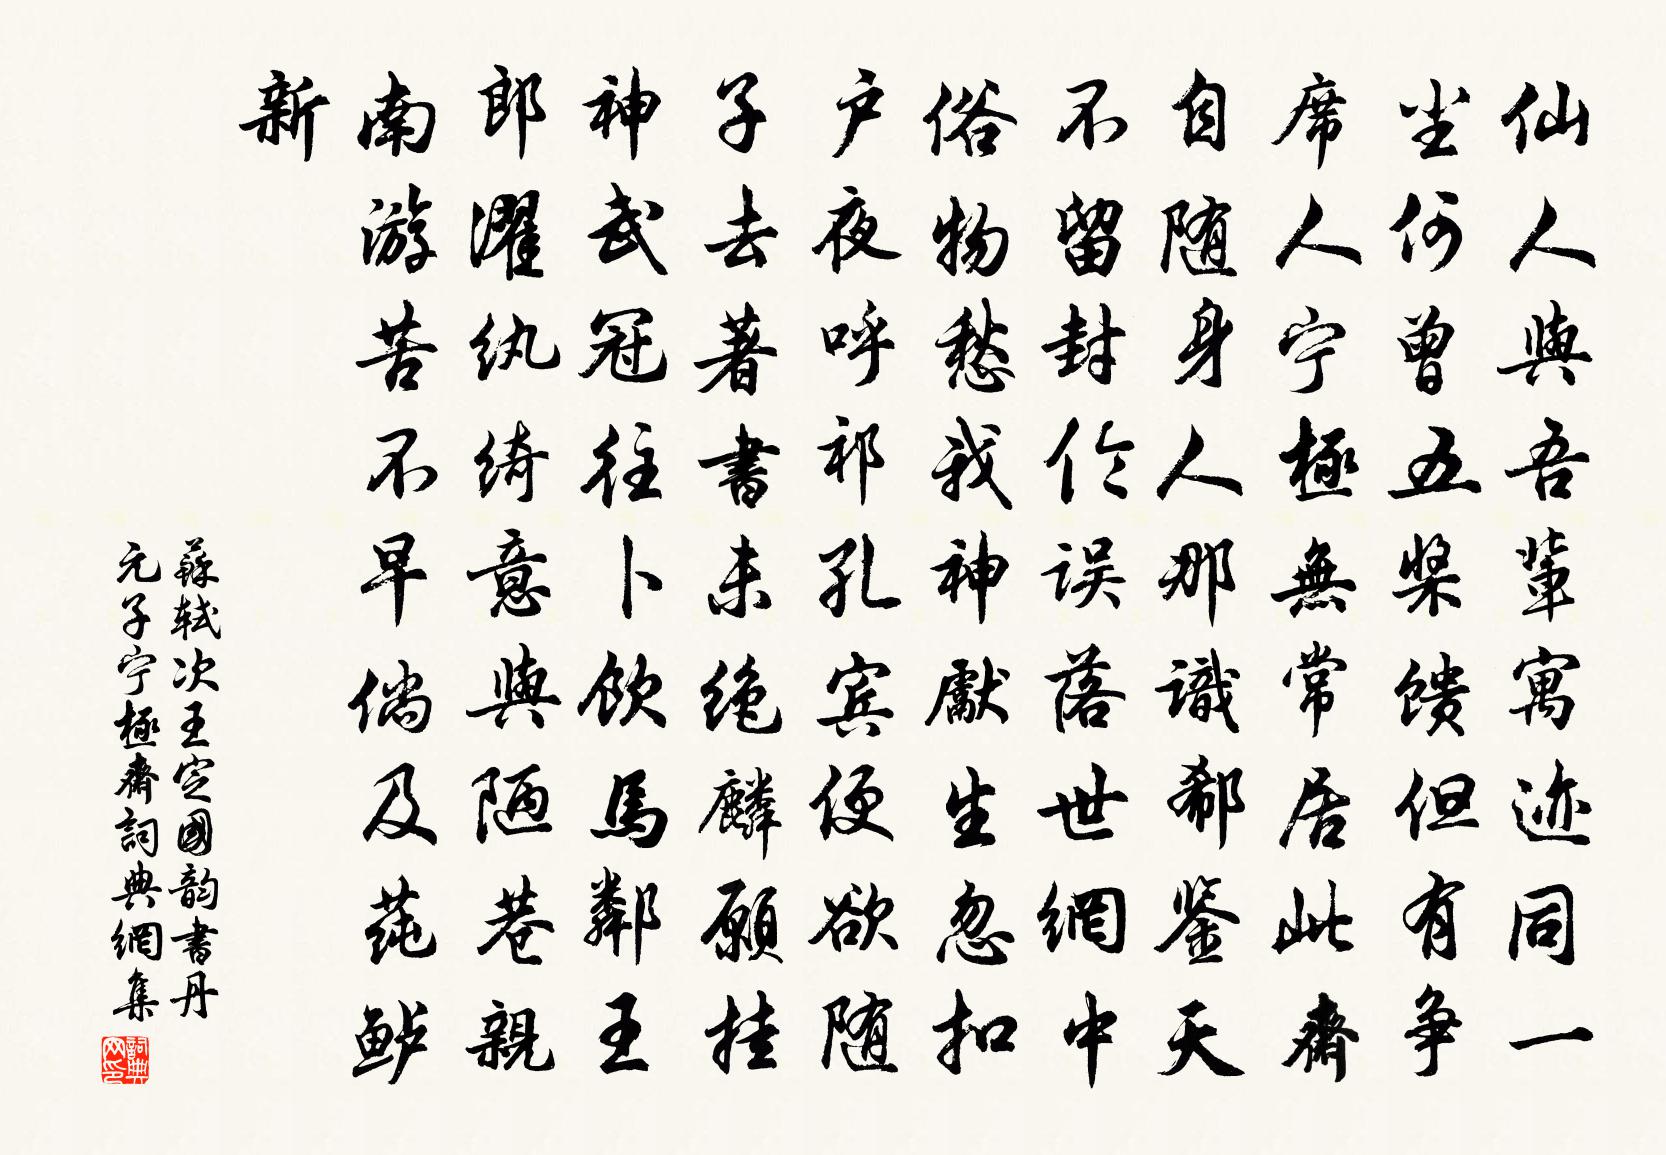 仙人與吾輩寓迹同一
尘何曾五桨馈但有争
席人宁極無常居此齋
自随身人那識郗鉴天
不留封伦误落世網中
俗物愁我神獻生忽扣
户夜呼祁孔宾便欲随
子去著書未绝麟願挂
神武冠往卜飲馬鄰王
郎濯纨绮意與陋巷親
南游苦不早倘及莼鲈
新
蘇轼次王定國韵書丹
元子宁極齋詞典網集
詞典网印